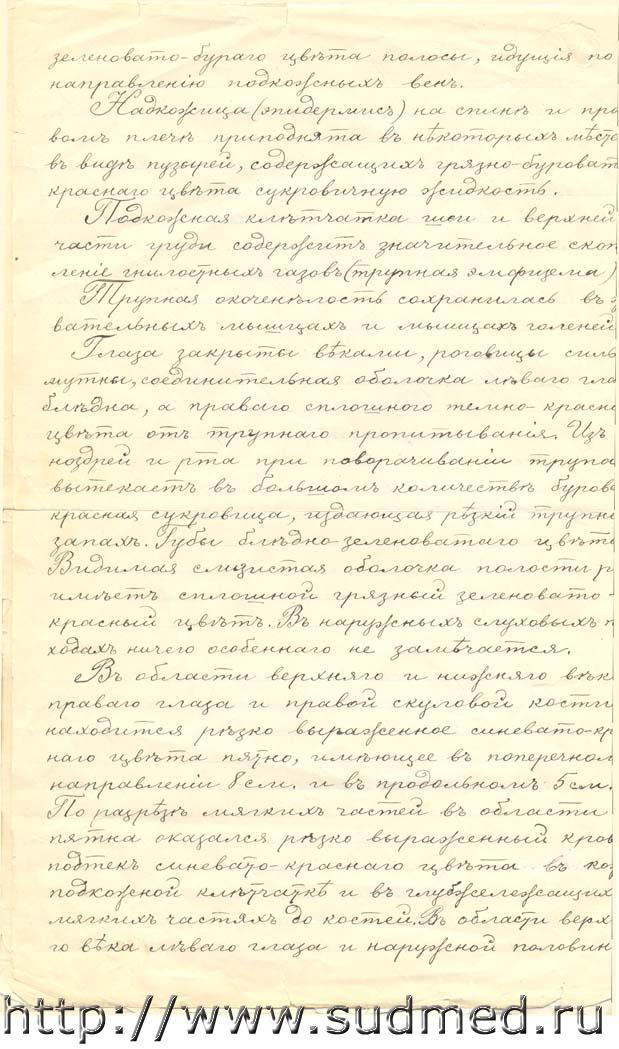 зеленовато-бураго цвѣта полосы, идущія по
направленію подкожныхъ венъ.
Надкожица (эпидермисъ) на спинѣ и пра
вомъ плечѣ приподнята въ нѣкоторыхъ мѣсте
въ видѣ пузырей, содержащихъ грязно-буроват
краснаго цвѣта сукровичную жидкость.
Подкожная клѣтчатка шеи и верхней
части груди содержитъ значительное скоп
леніе гнилостныхъ газовъ (трупная эмфизема)
Трупная окоченѣлость сохранилась въ
вательныхъ мышцахъ и мышцахъ голеней
Глаза закрыты вѣками, роговицы силь
мутны, соединительная оболочка лѣваго гла
блѣдна, а праваго сплошного темно-красн
цвѣта отъ трупнаго пропитыванія. Изъ
ноздрей и рта при поворачиваніи трупа
вытекаетъ въ большомъ количествѣ бурова
красная сукровица, издающая рѣзкій трупн
запахъ. Губы блѣдно-зеленоватаго цвѣта
Видимая слизистая оболочка полости р
имѣетъ сплошной грязный зеленовато-
красный цвѣтъ. Въ наружныхъ слуховыхъ п
ходахъ ничего особеннаго не замѣчается.
Въ области верхняго и нижняго вѣк
праваго глаза и правой скуловой кости
находится рѣзко выраженное синевато-кр
наго цвѣта пятно, имѣющее въ поперечном
направленіи 8 см. и въ продольномъ 5 см.
По разрѣзѣ мягкихъ частей въ области
пятна оказался рѣзко выраженный кров
подтекъ синевато-краснаго цвѣта въ ко
подкожной клѣтчаткѣ и въ глубжележащих
мягкихъ частяхъ до костей. Въ области верх-
го вѣка лѣваго глаза и наружной половин
http://www.sudmed.ru